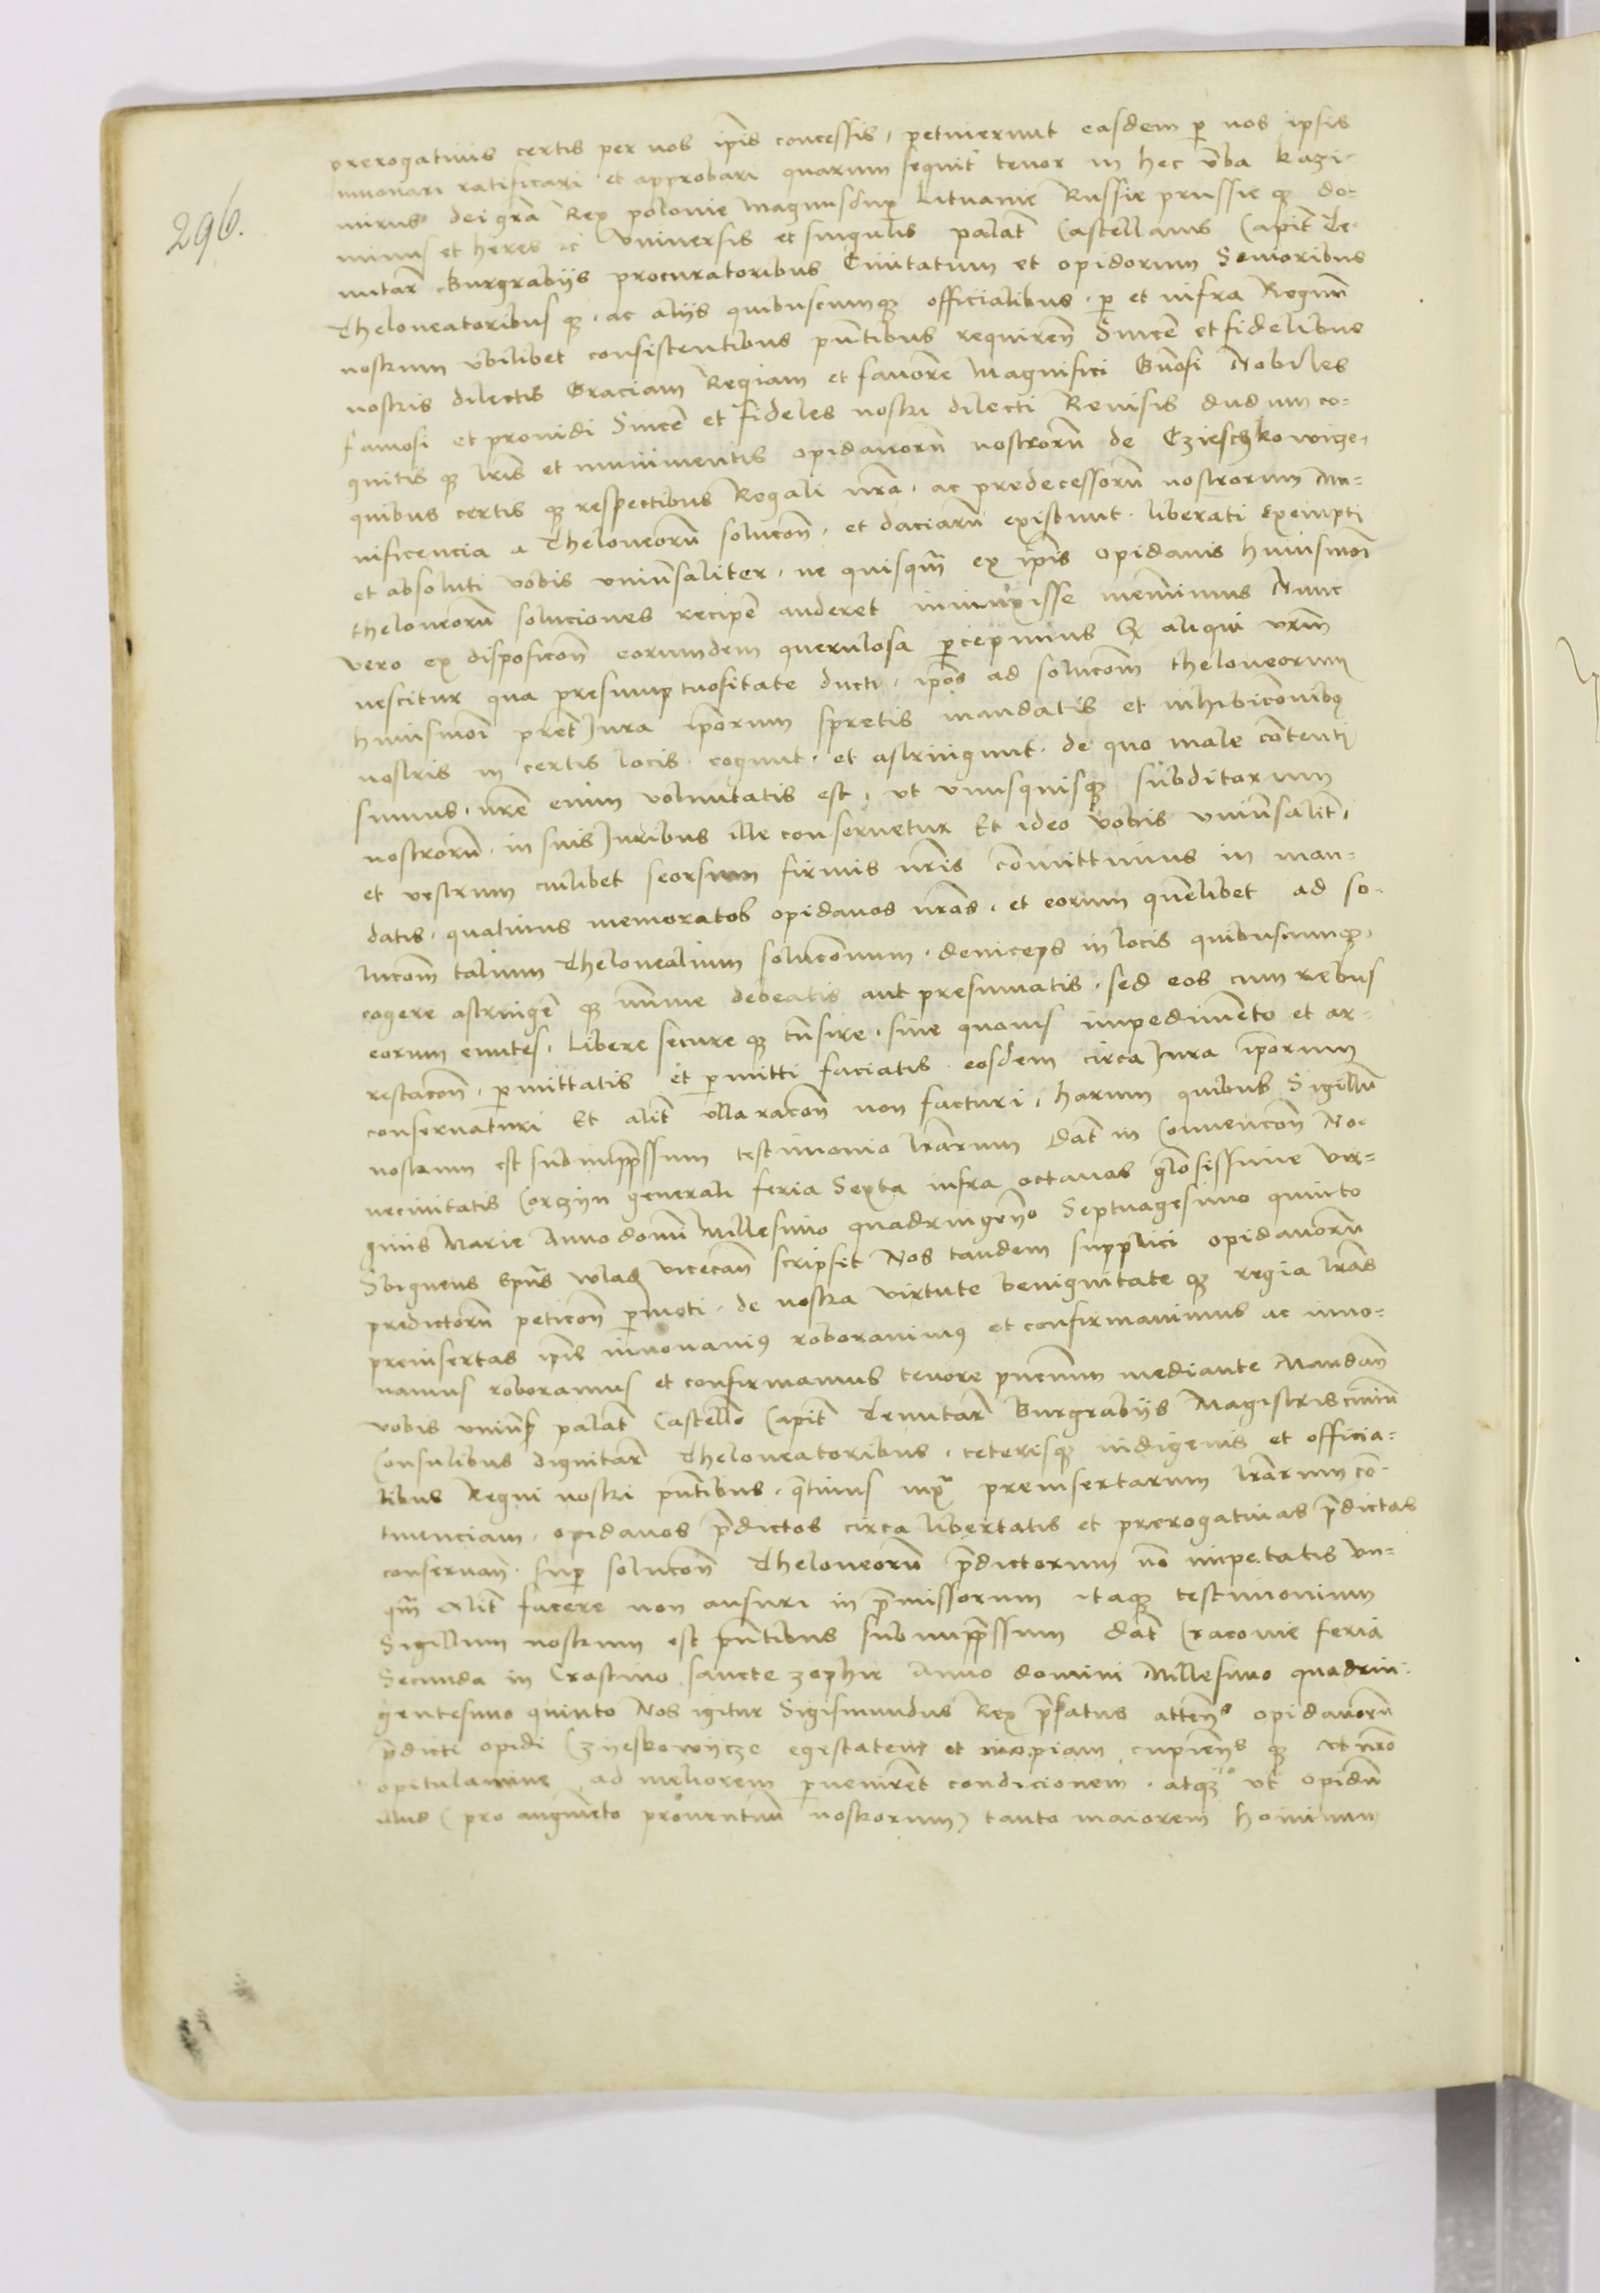 296.
prerogativis certis per nos ip̄is concessis, petiuerunt easdem p̱ nos ipsis
innouari ratificari et approbari quarum sequit̄ tenor in hec v̄ba Kazi-
mirus dei gr̄a Rex polonie magnusdux Lituanie Russie prussie qȝ do-
minus et heres ꝛc̄ Vniuersis et singulis palat̄ Castellanis Capit̄ Te-
nutar̄ Burgrabijs procuratoribus Ciuitatum et opidorum Senioribus
Theloneatoribus qȝ, ac alijs quibuscumqȝ officialibus, p̱ et infra Regnū
nostrum vbilibet consistentibus pn̄tibus requiren̄ Sincē et fidelibus
nostris dilectis Graciam Regiam et fauorē Magnifici Gn̄osi Nobiles
famosi et prouidi Sincē et fideles nostri dilecti Reuisis dudum co-
gnitis qȝ lr̄is et munimentis opidanorū nostrorū de Czieschkowicze,
quibus certis qȝ respectibus Regali nr̄a, ac predecessorū nostrorum mu-
nificencia a Theloneorū solucōn, et daciarū existunt, liberati exempti
et absoluti vobis vniūsaliter, ne quisqm̄ ex ip̄is opidanis huiusmōi
theloneorū soluciones recipē auderet iniunxisse meminimus Nunc
vero ex disposicōn eorumdem querulosa p̱cepimus Qȝ aliqui vr̄m̄
nescitur qua presumptuositate ducti, ip̄os ad solucōm theloneorum
huiusmōi pret̄ Jura ip̄orum spretis mandatis et inhibicōnibꝯ
nostris in certis locis cogunt, et astringunt, de quo male cōtenti
sumus, nr̄e enim voluntatis est, vt vnusquisqȝ subditorum
nostrorū, in suis Juribus ille conseruetur Et ideo vobis vniūsalit̄,
et vestrum cuilibet seorsum firmis nr̄is cōmittimus in man-
datis, quatinus memoratos opidanos nr̄os, et eorum quēlibet ad so-
lucōm talium Thelonealium solucōnum, deinceps in locis quibuscumqȝ,
cogere astringē qȝ minime debeatis aut presumatis, sed eos cum rebus
eorum euntes, Libere secure qȝ tn̄sire, sine quouis impedimēto et ar-
restacōn, p̱mittatis et p̱mitti faciatis, eosdem circa Jura ip̄orum
conseruaturi Et alit̄ vlla racōn non facturi, harum quibus Sigillū
nostrum est subimp̄ssum testimonio lr̄arum Dat̄ in Conuencōn No-
ueciuitatis Corzijn generali feria Sexta infra octauas gl̄osissime vir-
ginis Marie Anno domī Millesimo quadringenᵒ Septuagesimo quinto
Sbigneus Ep̄us wlad vicecan̄ scripsit Nos tandem supplici opidanorū
predictorū peticōn p̱moti, de nostra virtute benignitate qȝ regia lr̄as
preinsertas ip̄is innouauimꝯ roborauimꝯ et confirmauimus ac inno-
uamus roboramus et confirmamus tenore pn̄cium mediante Mandan̄
vobis vniūs palat̄ Castellō Capit̄ Tenutar̄ Burgrabijs Magistriscīuiū
Consulibus dignitar̄ Theloneatoribus, ceterisqȝ indigenis et officia-
libus Regni nostri pn̄tibus, qr̄tinus iux̄ preinsertarum lr̄arum cō-
tinenciam, opidanos p̄dictos circa libertatis et prerogatiuas p̄dictas
conseruan̄, sup̱ solucōn Theloneorū p̄dictorum nō impetatis vn-
qm̄ Alit̄ facere non ausuri in p̄missorum itaqȝ testimonium
Sigillum nostrum est pn̄tibus subimp̄ssum Dat̄ Cracouie feria
Secunda in Crastino sancte zophie Anno domini Millesimo quadrin-
gentesimo quinto Nos igitur Sigismundus Rex p̄fatus atten̄s opidanorū
p̄dicti opidi Czyeskowijcze egestatem et inopiam, cupien̄s qȝ vt nr̄o
opitulamine, ad meliorem p̱uenirēt condicionem, atqȝ vt opidū
illud (pro augmēto prouentuū nostrorum) tanto maiorem hominum